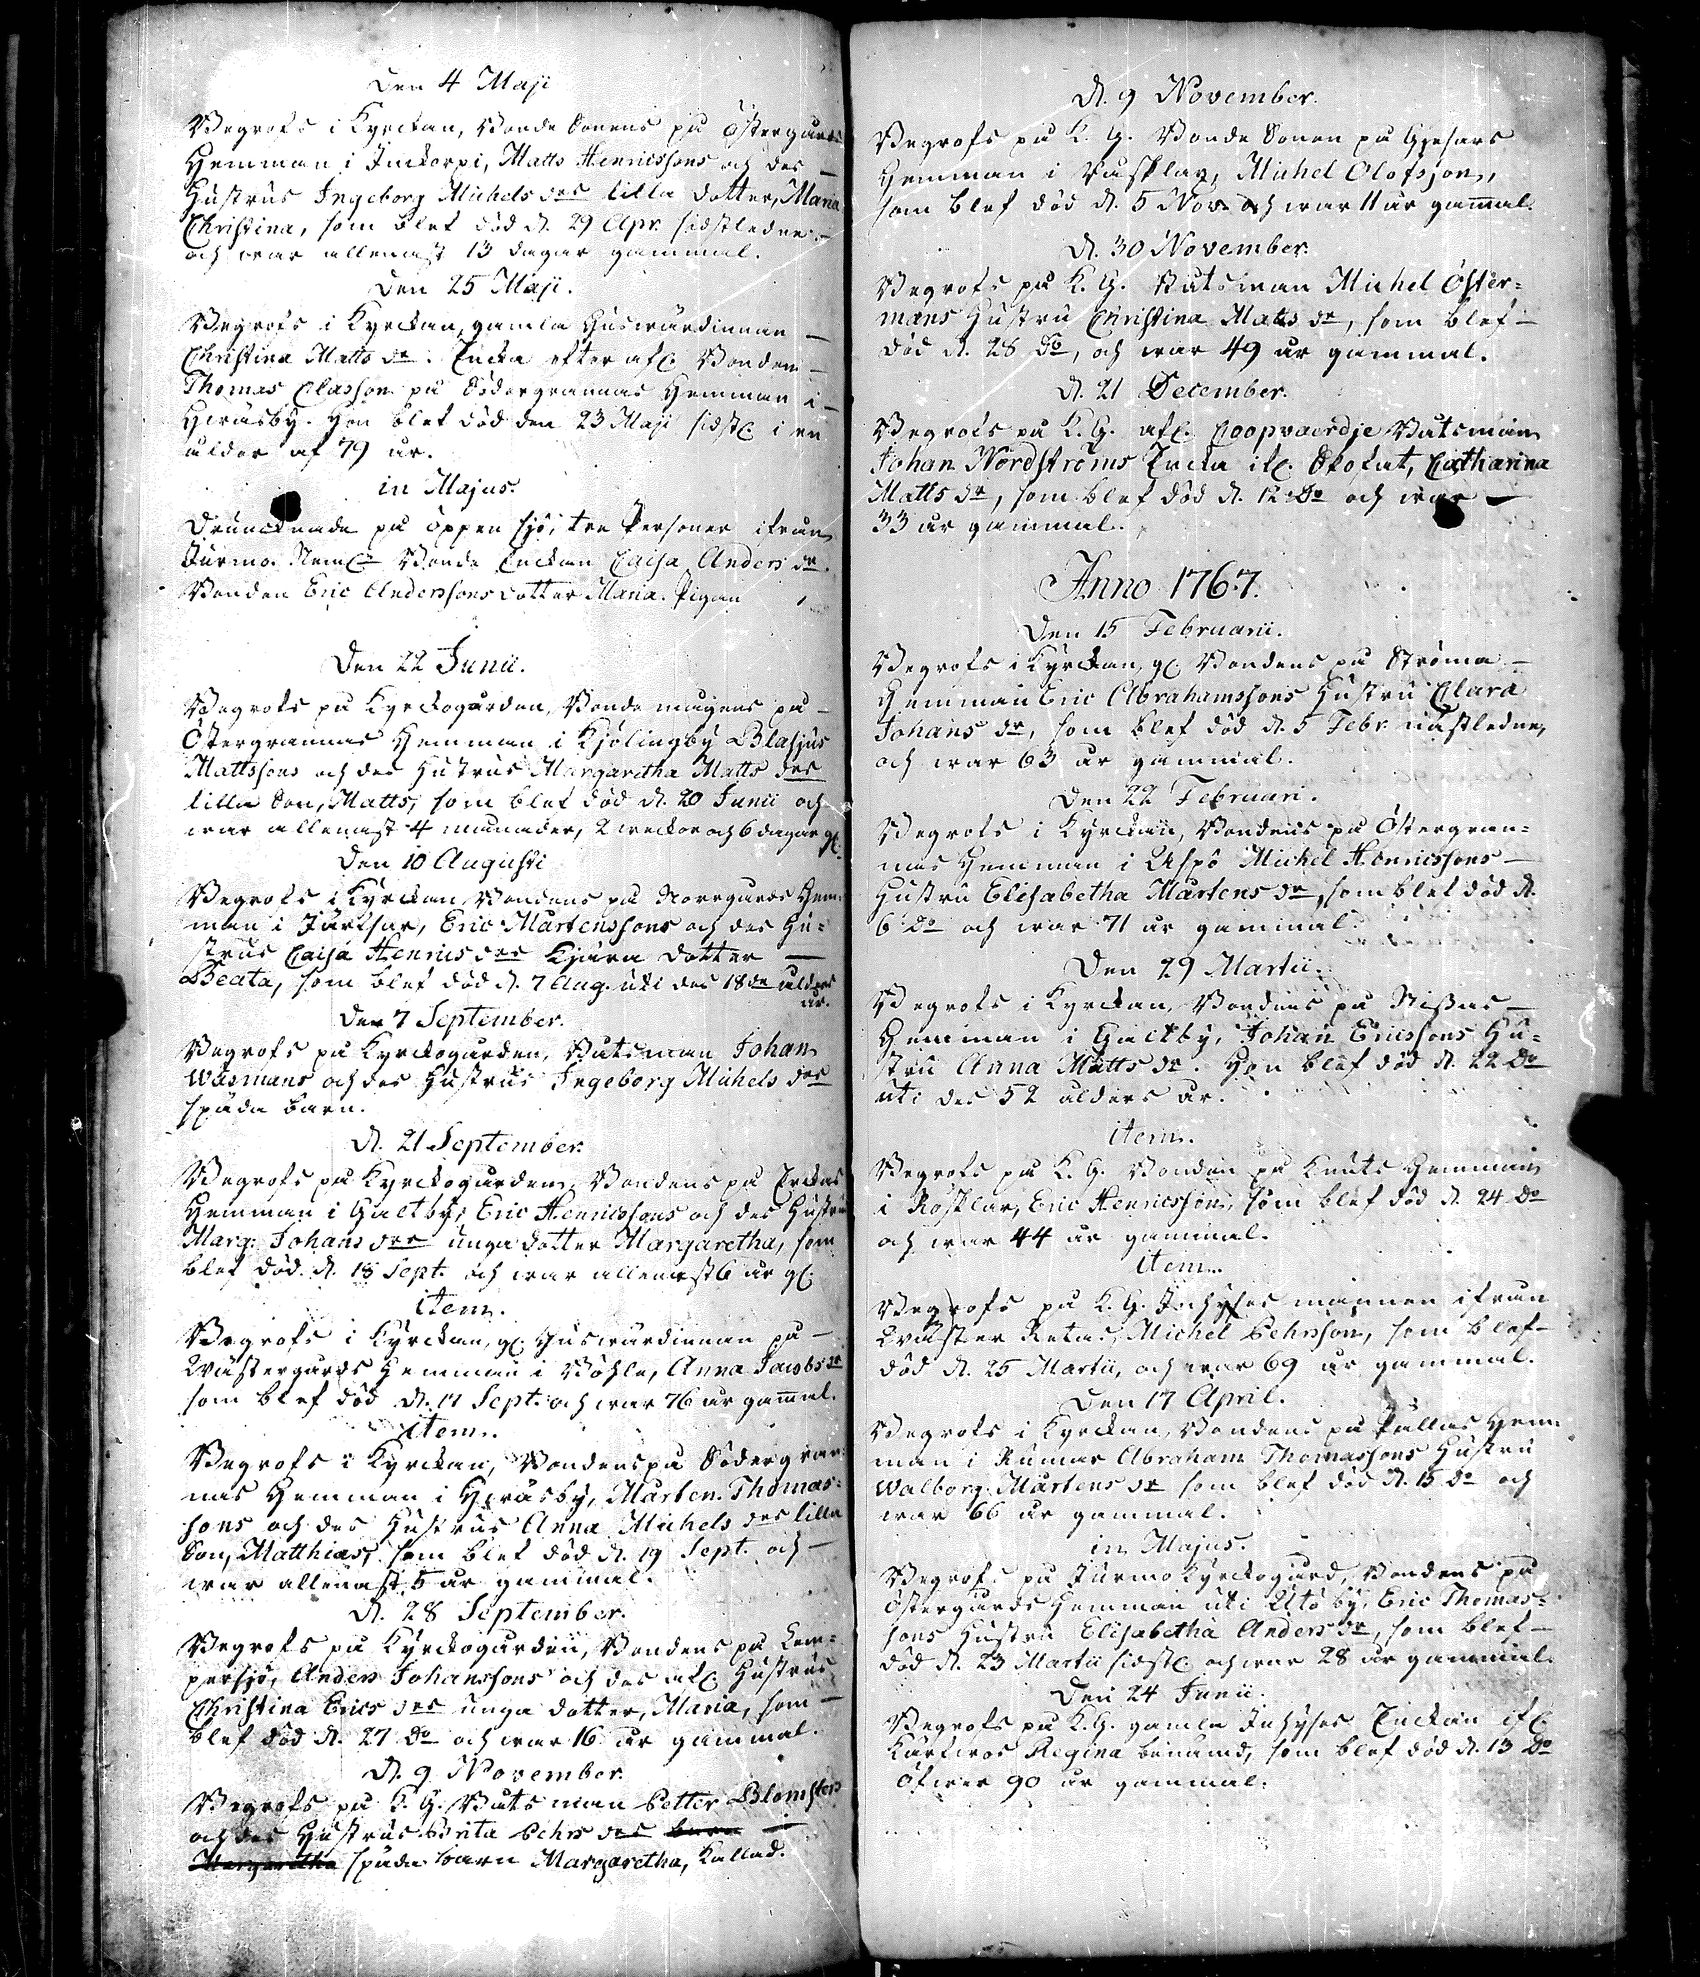 Den 4 Maji
Begrofs i Kyrckan, Bonde Sonens på Östergårds
Hemman i Jnickorpi, Matts Henricssons och des
Hustrus Ingeborg Michels drs lilla dotter, Maria
Christina, som blef död d. 29 Apr. sidstledne
och war allenast 13 dagar gammal.
Den 25 Maji.
Begrofs i Kyrckan, gamla Huswärdinnan
Christina Matts dr. Encka efter afl. Bonden
Thomas Classon på Södergrannas Hemman i
Hyräsby. Hon blef död den 23 Maji sidstl. i en
ålder af 79 år.
in Majus.
Druncknade på öppen sjö, tre Personer ifrån
Jurmo. Neml. Bonde Enckan Caisa Anders dr.
Bonden Eric Anderssons dotter Maria. Pigan
Den 22 Junii.
Begrofs på Kyrckogården, Bonde mågens på
Östergrannas Hemman i Kjölingby Blasjus
Mattssons och des Hustrus Margaretha Matts drs
lilla Son, Matts, som blef död d. 20 Junii och
war allenast 4 månader, 2 weckor och 6 dagar gl.
Den 10 Augusti
Begrofs i Kyrckan, Bondens på Norrgårds Hem-
man i Järfsar, Eric Mårtenssons och des Hu-
strus Caisa Henrics drs kjära dotter
Beata, som blef död d. 7 Aug. uti des 18de ålders
år.
Den 7 September.
Begrofs på Kyrckogården, Båtsman Johan
Wäsmans och des Hustrus Ingeborg Michels drs
späda barn.
d. 21 September.
Begrofs på Kyrckogården, Bondens på Erckas
Hemman i Galtby, Eric Henricssons och des Hustrus
Marg: Johans drs unga dotter Margaretha, som
blef död d. 18 Sept. och war allenast 6 år gl.
item.
Begrofs i Kyrckan, gl. Huswärdinnan på
Wästergårds Hemman i Mosla, Anna Jacobs dr
som blef död d. 17 Sept. och war 76 år gamal.
item.
Begrofs i Kyrckan, Bondens på Södergran-
nas Hemman i Hyräsby, Mårten Thomas-
sons och des Hustrus Anna Michels drs lilla
Son, Matthias, som blef död d. 19 Sept. och
war allenast 5 år gammal.
d. 28 September.
Begrofs på Kyrckogården, Bondens på Kem-
persjö, Anders Johanssons och des afl. Hustrus
Christina Erics drs unga dotter, Maria, som
blef död d. 27 do och war 16 år gammal.
d. 9 November.
Begrofs på K. G. Båtsman Petter Blomsters
och des Hustrus Brita Pehrs drs barn
Margaretha späda barn Margaretha, Kallad.
d. 9 November.
Begrofs på K. G. Bonde Sonen på Gjesars
Hemman i Wasklax, Michel Olofsson,
som blef död d. 5 Nov. och war 11 år gamal.
d. 30 November.
Begrofs på K. G. Båtsman Michel Öster-
mans Hustru Christina Matts dr, som blef
död d. 28 do, och war 49 år gammal.
d. 21 December.
Begrofs på K. G. afl. Coopvaerdje Båtsman
Johan Nordströms Encka ifl. Skokat, Catharina
Matts dr, som blef död d. 12 do och war
33 år gammal.
Anno 1767.
Den 15 Februarii.
Begrofs i Kyrckan, gl. Bondens på Ströma
Hemman Eric Abrahamssons Hustru Clara
Johans dr, som blef död d. 5 Febr. nästledne,
och war 63 år gammal.
Den 22 Februari.
Begrofs i Kyrckan, Bondens på Östergran-
nas Hemman i Aspö Michel Henricssons
Hustru Elisabetha Mårtens dr, som blef död d.
6 do och war 71 år gammal.
Den 29 Martii.
Begrofs i Kyrckan, Bondens på Nissas
Hemman i Galtby, Johan Ericssons Hu-
stru Anna Matts dr. Hon blef död d. 22 do
uti des 52 ålders år.
item.
Begrofs på K. G. Bonden på Knuts Hemman
i Rosklax, Eric Henricsson, som blef död d. 24 do
och war 44 år gammal.
item.
Begrofs på K. G. Inhyses mannen ifrån
Wäster Retas, Michel Pehrsson, som blef
död d. 25 Martii, och war 69 år gammal.
Den 17 April.
Begrofs i Kyrckan, Bondens på Pallas Hem-
man i Rumar Abraham Thomassons Hustru
Walborg Mårtens dr som blef död d. 15 do och
war 66 år gammal.
in Majus.
Begrofs på Jurmo Kyrckogård, Bondens på
Östergårds Hemman uti Utö by, Eric Thomas-
sons Hustru Elisabetha Anders dr, som blef
död d. 23 Martii sidstl. och war 28 år gammal.
Den 24 Junii.
Begrofs på K. G. gamla Inhyses Enckan ifl.
Regina benämd, som blef död d. 13 do
öfwer 90 år gammal.